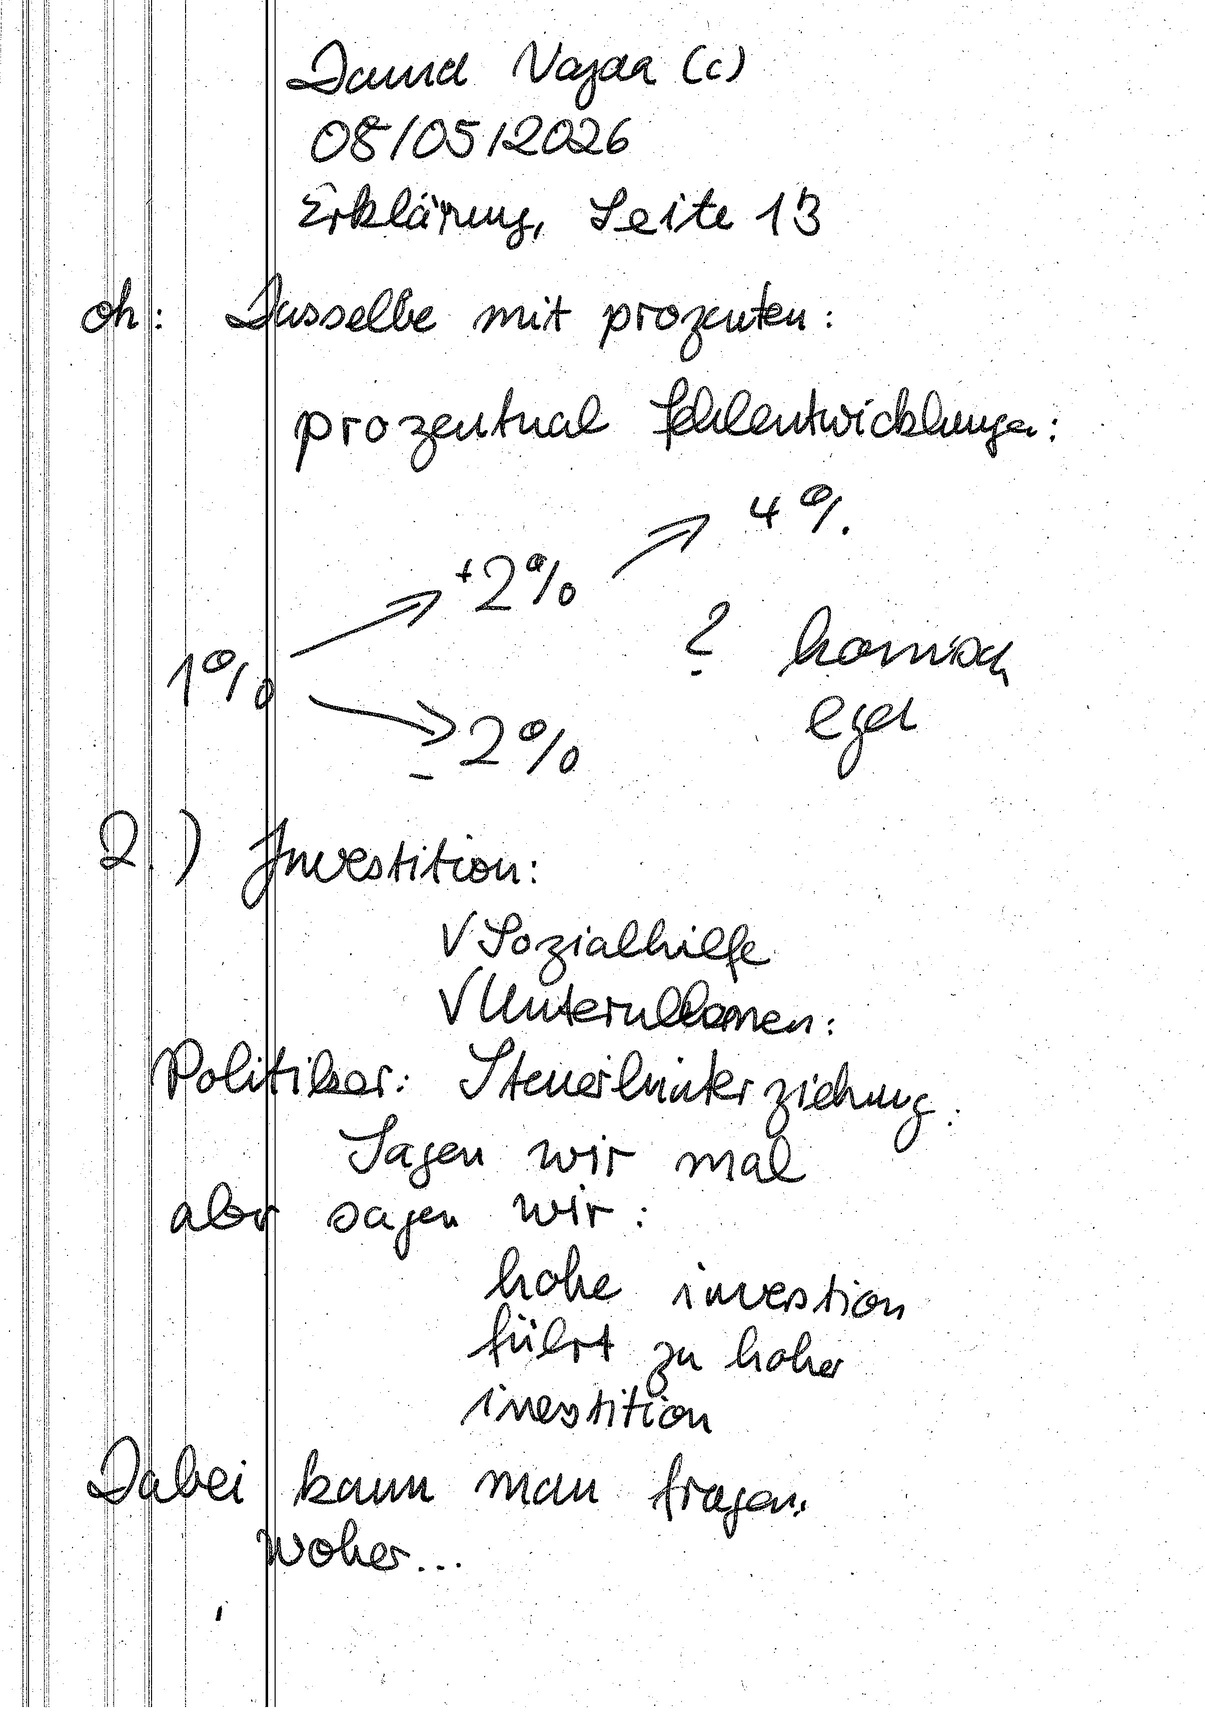 David Vajda (c)
08/05/2026
Erklärung, Seite 13
oh: Dasselbe mit prozenten:
prozentual Fehlentwicklungen:
4%
+2%
1%
? komisch
egal
-2%
2.) Investition:
√ Sozialhilfe
√ Unternehmen:
Politiker: Steuerhinterziehung.
Sagen wir mal
aber sagen wir:
hohe investion
führt zu hoher
inestition
Dabei kann man fragen,
woher...